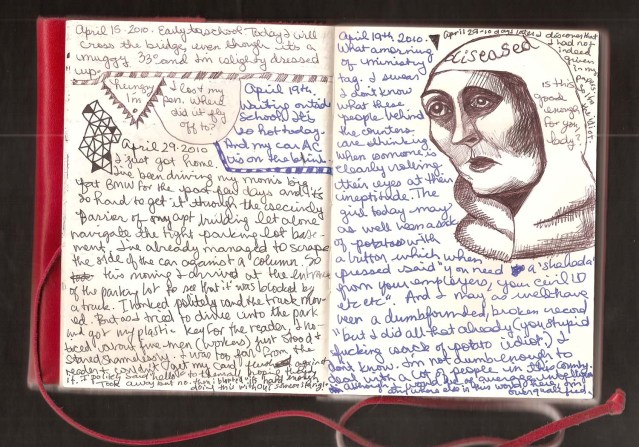 April 15. 2010. Early to school. Today I will
cross the bridge even though its a
muggy 33° and I'm slightly dressed
up.
hungry
I'm
I lost my
pen. Where
did it fly
off to?
April 19th.
Waiting outside
school. It's
so hot today.
And my car AC
is on the blink.
April 29.2010
I just got home.
I've been driving my mom's big
fat BMW for the past few days and it's
so hard to get it through the security
barrier of my apt building let alone
navigate the tight parking lot base-
ment. I've already managed to scrape
the side of the car against a column. So
this morning I arrived at the entrance
of the parking lot to see that it was blocked by
a truck. I honked politely and the truck mov-
ed. But as I tried to drive into the park
and got my plastic key for the reader, I no-
ticed about five men (workers) just stood &
stared shamelessly. I was too far from the
reader & couldn't get my card against
it. I politely said hello to them hoping they'd
look away but no. this is hard enough
doing this without shameless
April 19th 2010.
What a morning
of ministry
tag. I swear
I don't know
what these
people behind
the counters
are thinking
when someone is
clearly rolling
their eyes at their
ineptitude. The
girl today may
as well been a sack
of potatoes with
a button which when
pressed said "you need a "shahada"
from your employers, your civil ID
etc etc". And I may as well have
been a dumbfounded, broken record
"but I did all that already (you stupid
fucking sack of potato idiot.) I
don't know. I'm not dumb enough to
deal with a lot of people in this country.
although I would be of average intelligence
anywhere else in this world. Here, I'm
overqualified.
April 29 - 10 days later I discover that
I had not
indeed
given
in my
papers
I'm
idiot.
diseased
Is this
good
enough
for you
lady?